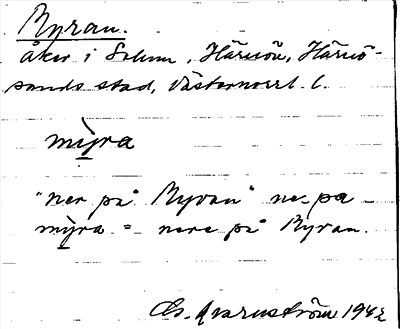 Myran.
åker i Solum, Härnön, Härnö-
sands stad, Västernorrl. l.
mỳra
"ner på Myran" ne pa
mỳra = nere på Myran.
Kvarnström 1942